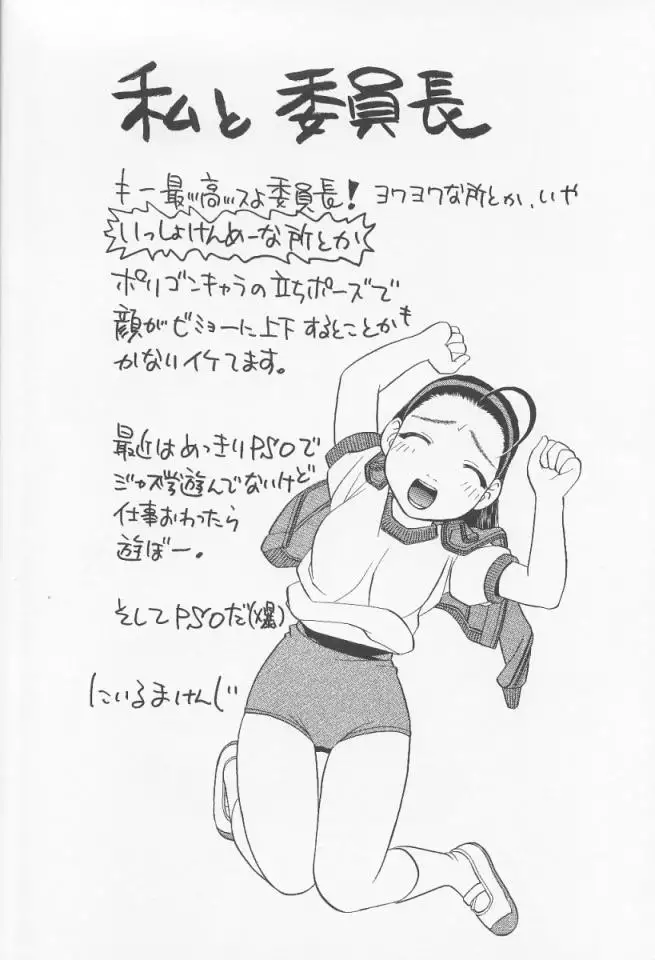 私と委員長
キー最ッ高ッスよ委員長! ヨワヨワな所とか、いや
いっしょけんめーな所とか
ポリゴンキャラの立ちポーズで
顔がビミョーに上下するとことかも
かないイケてます。
最近はめっきりPSOで
遊んでないけど
仕事おわったら
遊ぼー。
そしてPSOだ(爆)
にいるまけんじ